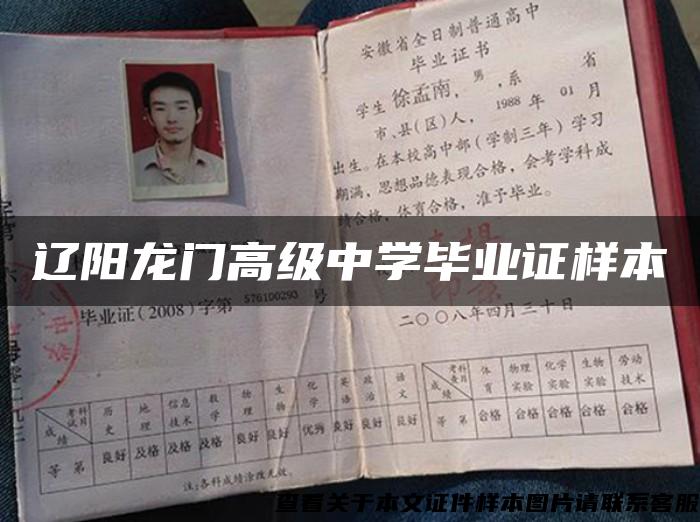 安徽省全日制普通高中
毕业证书
学生徐孟南，男，系 省
市、县(区)人，1988年01月
出生。在本校高中部(学制三年)学习
期满，思想品德表现合格，会考学科成
绩合格，体育合格，准予毕业。
辽阳龙门高级中学毕业证样本
毕业证(2008)字第576100293号
二〇〇八年四月三十日
考试科目 历史 地理 信息技术 数学 物理 生物 化学 英语 政治 语文
成绩
等第 良好 及格 及格 及格 良好 良好 优秀 良好 良好 良好
注:各科成绩涂改无效。
考查科目 体育 物理实验 化学实验 生物实验 劳动技术
成绩
等第 合格 合格 合格 合格 合格
查看关于本文证件样本图片请联系客服